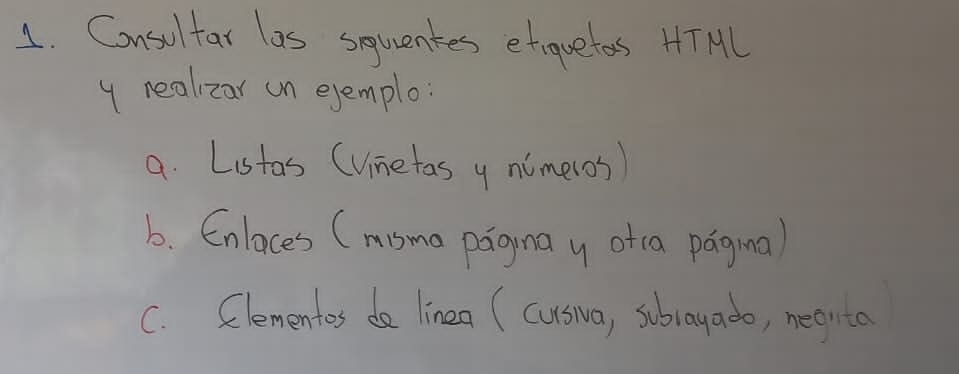 1. Consultar las siguientes etiquetas HTML
y realizar un ejemplo:
a. Listas (Viñetas y números)
b. Enlaces (misma página y otra página)
c. Elementos de línea (cursiva, subrayado, negrita